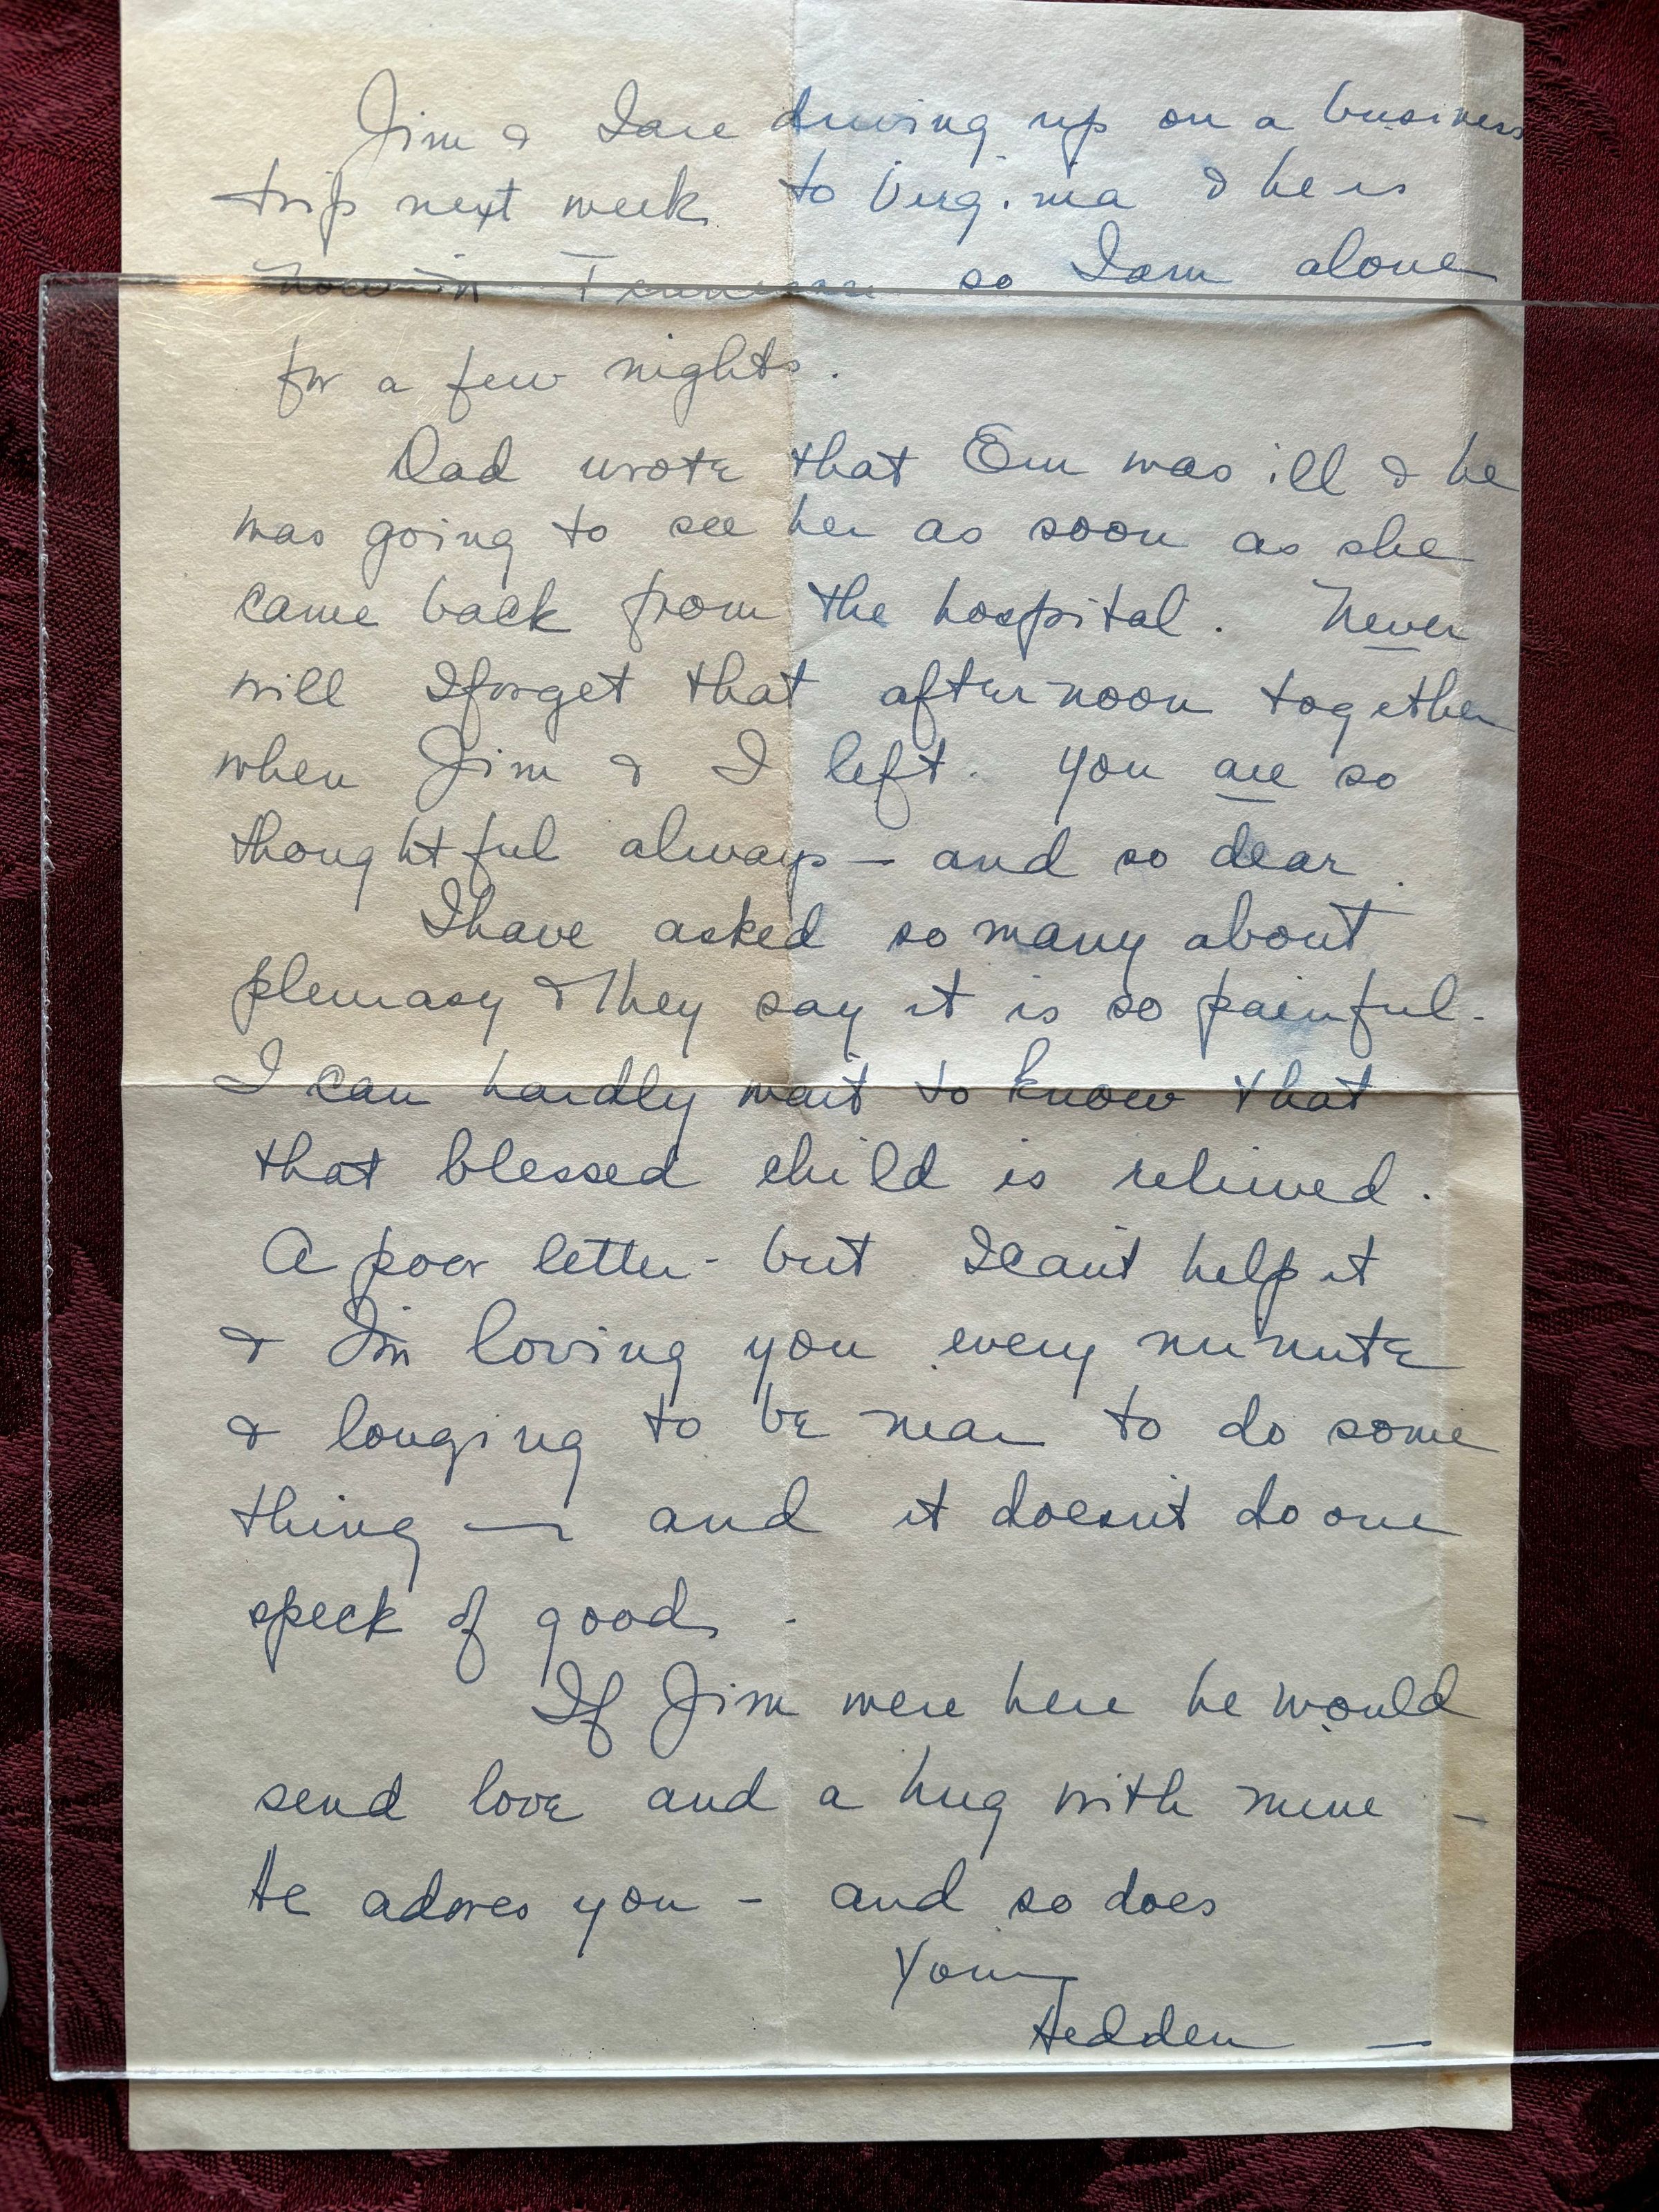 Jim & I are driving up on a business
trip next week to Virginia & he is
now in Tennessee so I am alone
for a few nights.
Dad wrote that Em was ill & he
was going to see her as soon as she
came back from the hospital. Never
will I forget that afternoon together
when Jim & I left. You are so
thoughtful always — and so dear.
I have asked so many about
pleurasy & they say it is so painful.
I can hardly wait to know that
that blessed child is relieved.
A poor letter - but I can't help it
& I'm loving you every minute
& longing to be near to do some
thing — and it doesn't do one
speck of good.
If Jim were here he would
send love and a hug with mine —
He adores you - and so does
Your
Hedden —